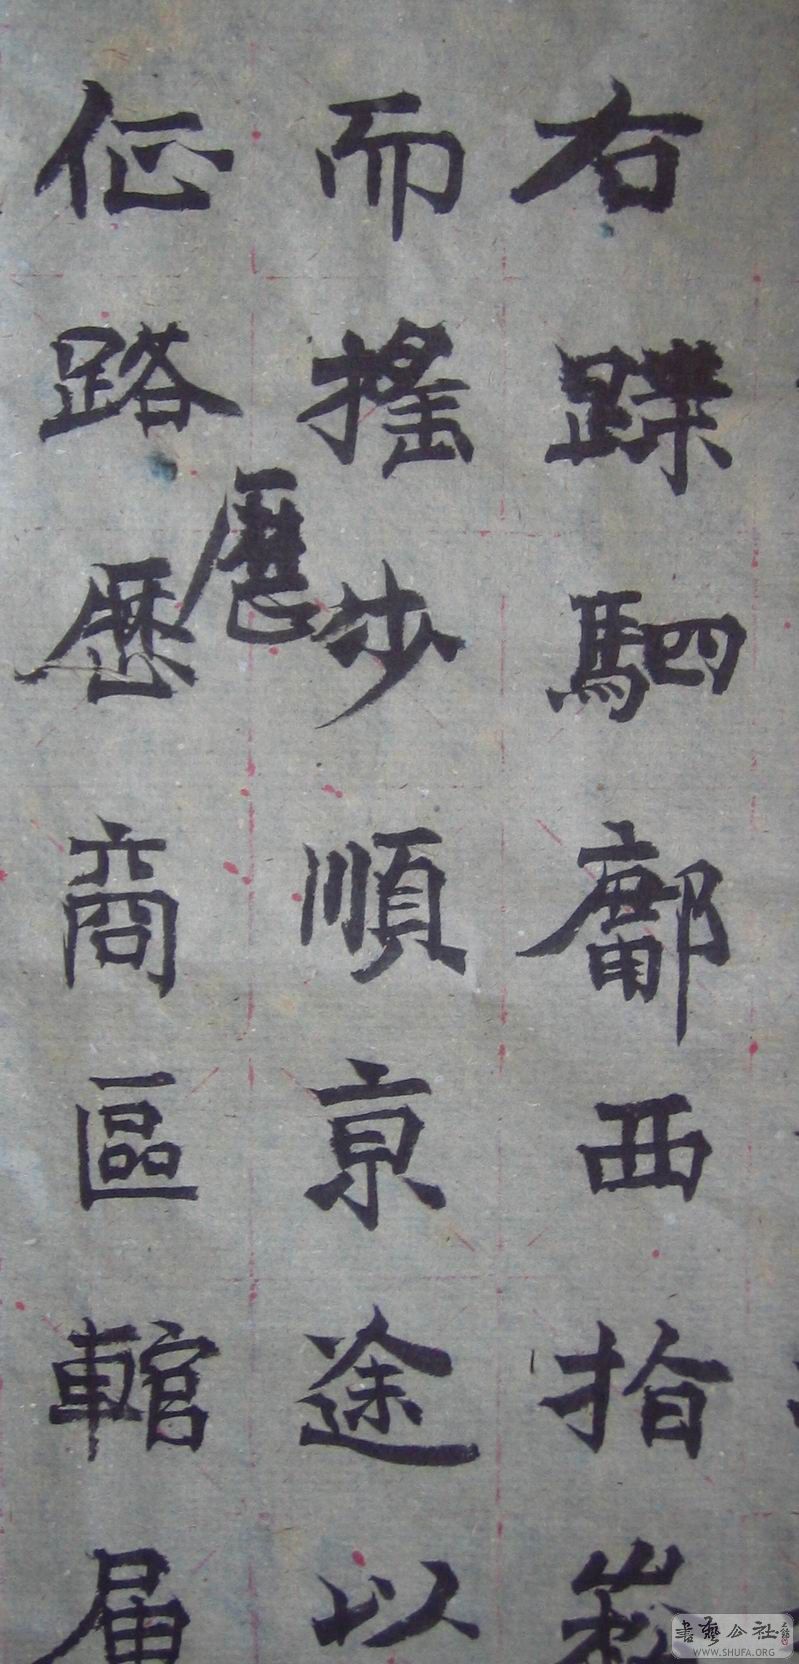 右蹀駟鄘西指
而搖步順亰途以
佂路歷商區輨届
歷
書藝公社
WWW.SHUFA.ORG